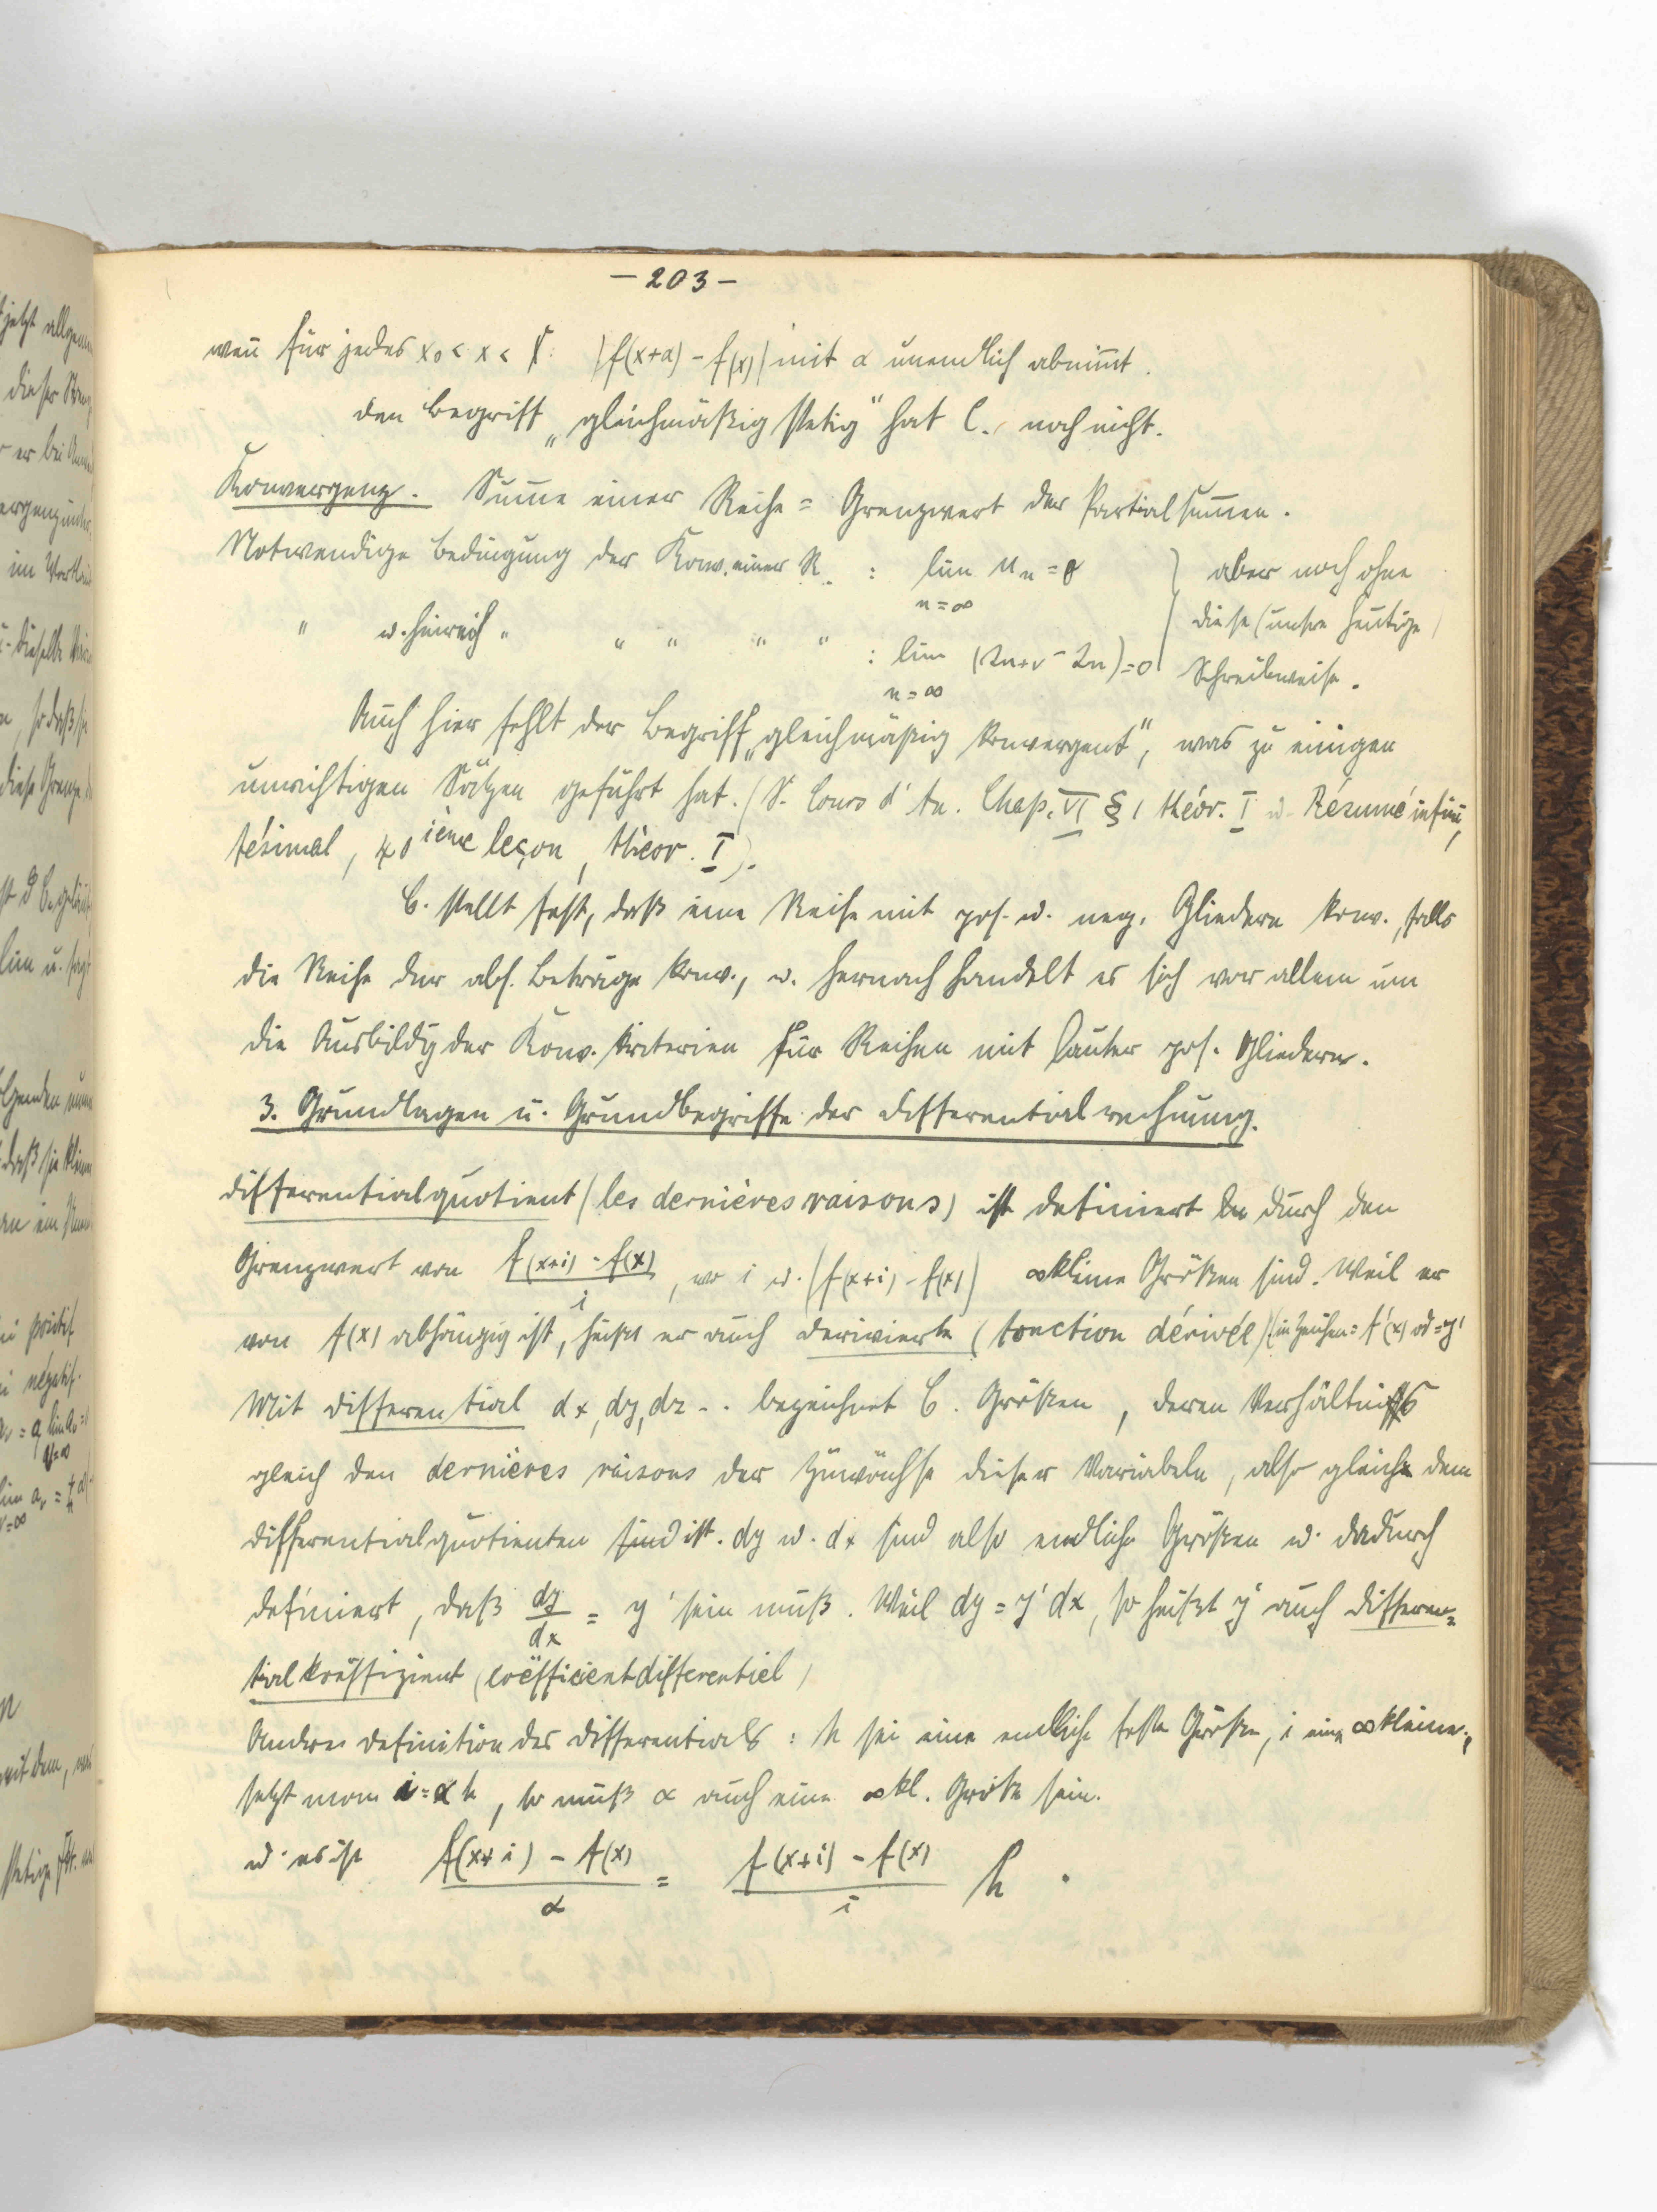 — 203 —
wenn für jedes x₀ < x < X: |f(x+α) - f(x)| mit α unendlich abnimmt.
Den Begriff „gleichmäßig stetig" hat C. noch nicht.
Konvergenz. Summe einer Reihe = Grenzwert der Partialsummen.
Notwendige Bedingung der Konv. einer R. : lim uₙ = 0 } aber noch ohne
n = ∞
" u. hinreich " " " " " : lim (sₙ₊ᵥ - sₙ) = 0 diese (unsre heutige)
n = ∞ Schreibweise.
Auch hier fehlt der Begriff „gleichmäßig konvergent", was zu einigen
unrichtigen Sätzen geführt hat. (S. Cours d'An. Chap. VI § 1 théor. I u. Résumé infini,
tésimal, 40ième leçon, théor. I).
C. stellt fest, daß eine Reihe mit pos. u. neg. Gliedern konv., falls
die Reihe der abs. Beträge konv., u. hernach handelt es sich vor allem um
die Ausbildg der Konv. kriterien für Reihen mit lauter pos. Gliedern.
3. Grundlagen u. Grundbegriffe der Differentialrechnung.
Differentialquotient (les dernières raisons) ist definiert durch den
Grenzwert von (f(x+i) - f(x))/i, wo i u. (f(x+i) - f(x)) ∞ kleine Größen sind. Weil er
von f(x) abhängig ist, heißt er auch Derivierte (fonction dérivée) (in Zeichen: f'(x) od = y'
Mit Differential dx, dy, dz - . bezeichnet C. Größen, deren Verhältnis
gleich den dernières raisons der Zuwächse dieser Variabeln, also gleich dem
Differentialquotienten sind ist. dy u. dx sind also endliche Größen u. dadurch
definiert, daß dy/dx = y' sein muß. Weil dy = y' dx, so heißt y' auch Differen=
tialkoëffizient (coëfficient differentiel)
Andere Definition des Differentials : h sei eine endliche feste Größe, i eine ∞ kleine;
setzt man i = αh, so muß α auch eine ∞ kl. Größe sein.
u. es ist (f(x+i) - f(x))/α = (f(x+i) - f(x))/i h .